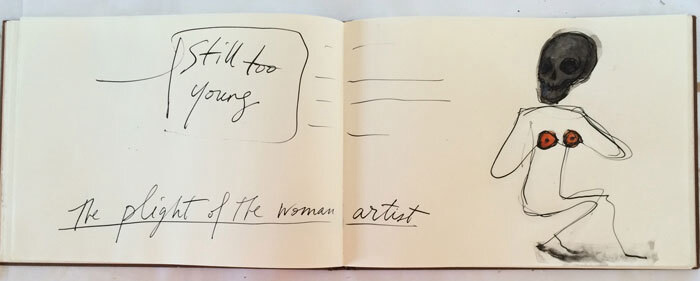 Still too
young
The plight of the woman artist